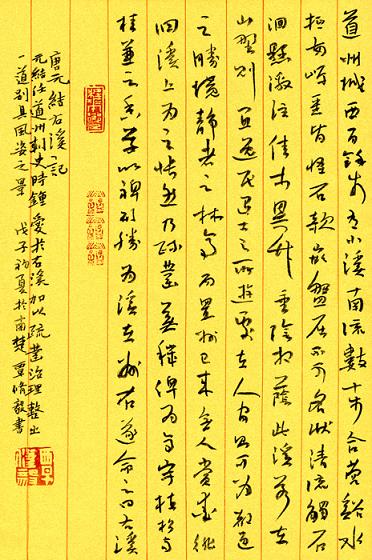 道州城西百餘步有小溪南流數十步合營谿水
抵兩岸悉皆怪石欹嵌盤屈不可名狀清流觸石
洄懸激注佳木異竹垂陰相蔭此溪若在
山野則宜逸民退士之所遊處在人間則可為都邑
之勝境靜者之林亭而置州已來無人賞愛徘
徊溪上為之悵然乃疏鑿蕪穢俾為亭宇植松與
桂兼之香草以裨形勝為溪在州右遂命之曰右溪
唐元結右溪記
元結任道州刺史時鍾愛於右溪加以疏鑿治理整出
一道別具風姿之景 戊子初夏於南楚覃脩毅書